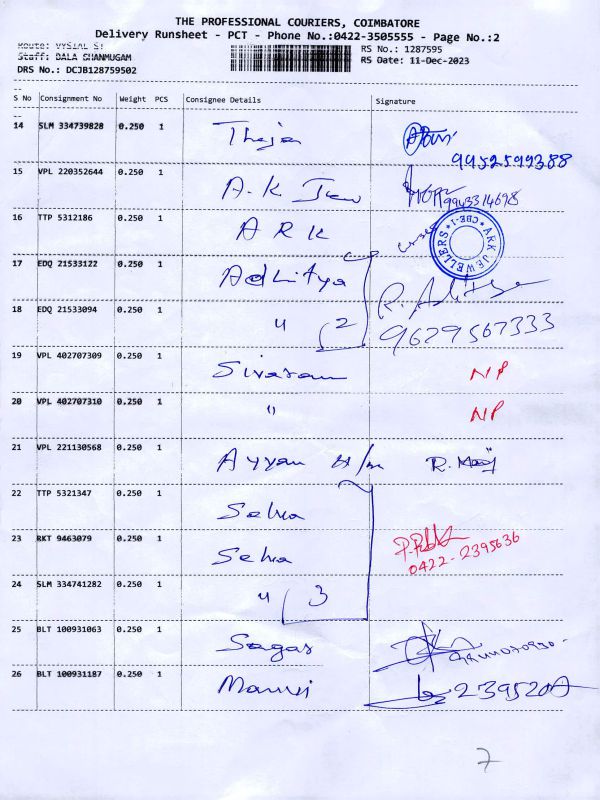 THE PROFESSIONAL COURIERS, COIMBATORE
Delivery Runsheet - PCT - Phone No.:0422-3505555 - Page No.:2
Route: VYSIAL ST
Staff: BALA SHANMUGAM
DRS No.: DCJB128759502
RS No.: 1287595
RS Date: 11-Dec-2023
S No Consignment No Weight PCS Consignee Details Signature
14 SLM 334739828 0.250 1 Theja
9952599388
15 VPL 220352644 0.250 1 A.K
9943314698
16 TTP 5312186 0.250 1 ARK
ARK JEWELLERS * CBE-1 *
17 EDQ 21533122 0.250 1 Adhitya
18 EDQ 21533094 0.250 1 " 2 R. Aditya
9629567333
19 VPL 402707309 0.250 1 Sivaram NP
20 VPL 402707310 0.250 1 " NP
21 VPL 221130568 0.250 1 Ayyan H/w R.
22 TTP 5321347 0.250 1 Selva
23 BKT 9463079 0.250 1 Selva
0422-2395636
24 SLM 334741282 0.250 1 " 3
25 BLT 100931063 0.250 1 Sagar
26 BLT 100931187 0.250 1
7